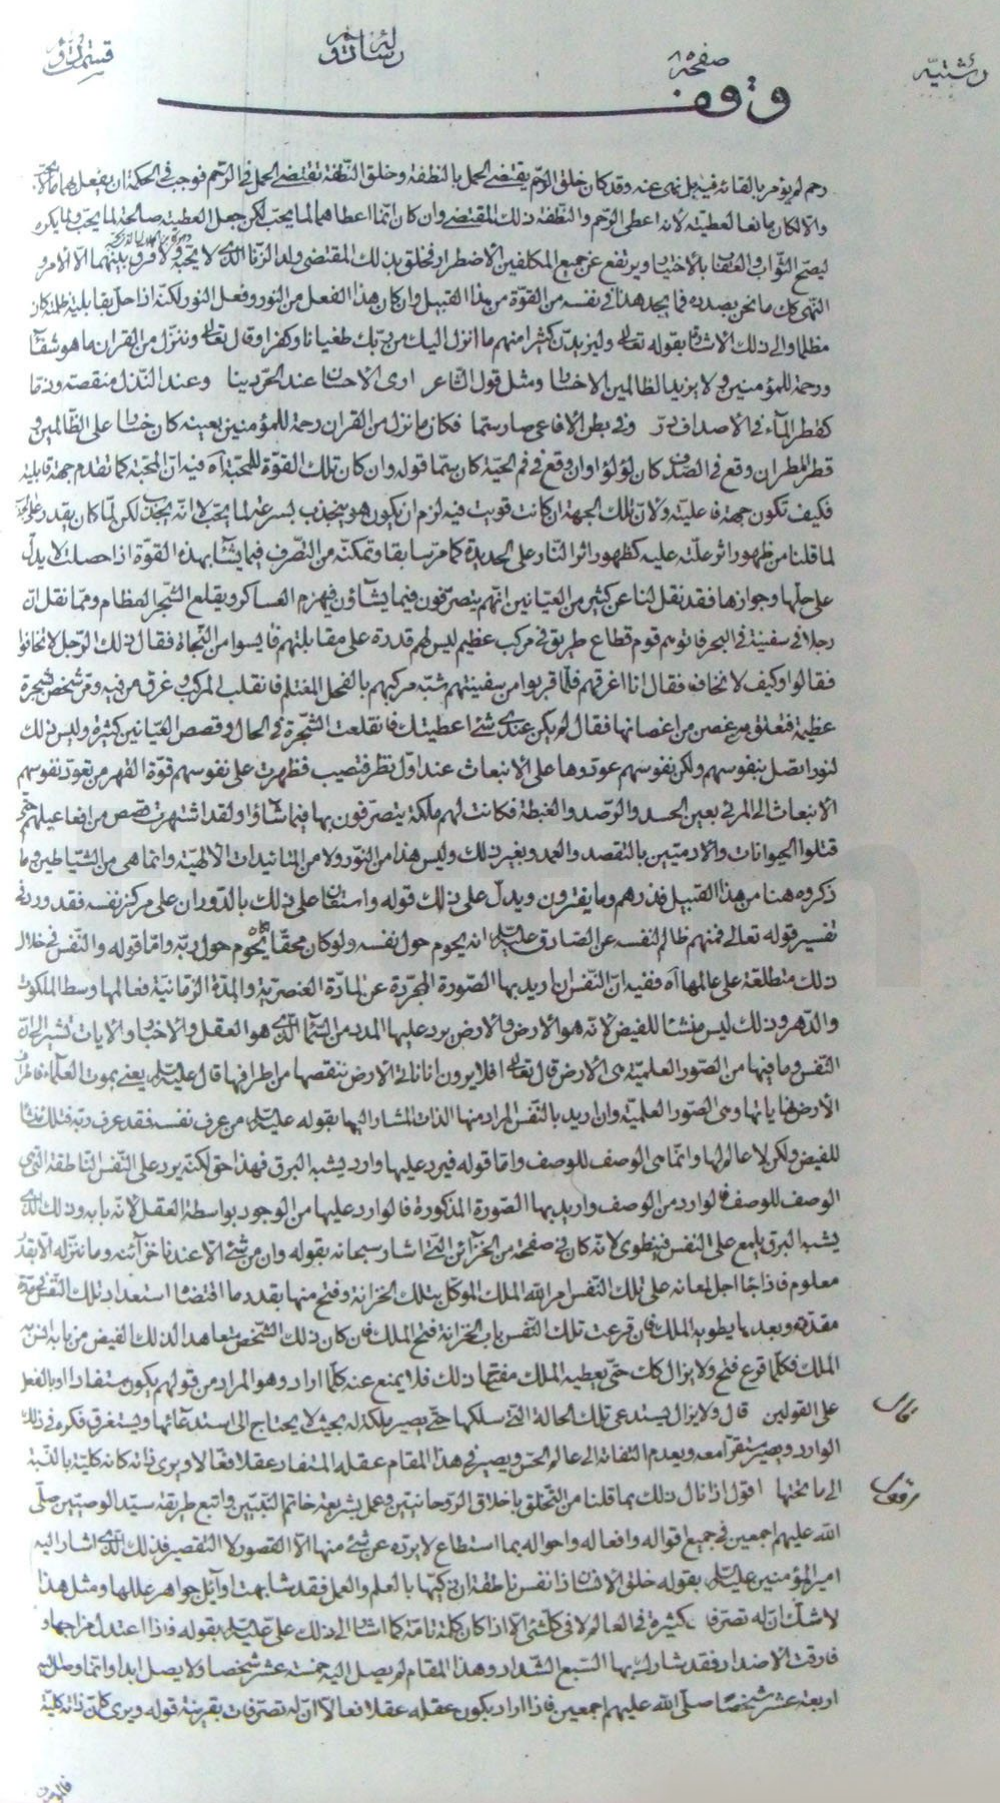 رشتیّه
صفحه
رسالته
وقف
رحم لم يؤمر بالقائه فيه بل نهى عنه وقد كان خلق الرّحم يقتضى الحمل بالنطفة وخلق النّطفة تقتضى الحمل فى الرّحم فوجب فى الحكمة ان يفعل بهما
والّا لكان مانعا لعطيّته لانه اعطى الرّحم والنّطفة ذلك المقتضى وان كان انّما اعطاهما لما يحبّ لكن جعل العطية صالحة لما يحبّ ولما يكره
ليصحّ الثّواب والعقاب بالأختيار ويرتفع عن جميع المكلفين الأضطرار فخلق بذلك المقتضى ولد الزنا الذى لا يحبّه ولا فرق بينهما الّا الأمر و
النّهى كك ما نحن بصدده فما يجد هذا فى نفسه من القوّة من هذا القبيل وان كان هذا الفعل من النور وفعل النور لكنّه اذا حلّ بقابلية ظلمة كان
مظلما والى ذلك الأشارة بقوله تعالى وليزيدنّ كثيرا منهم ما انزل اليك من ربّك طغيانا وكفرا وقال تعالى وننزّل من القران ما هو شفآء
ورحمة للمؤمنين ولا يزيد الظالمين الا خسارا ومثل قول الشّاعر ارى الأحسان عند الحرّ دينا وعند النّذل منقصة وذمّا
كقطر المآء فى الأصداف درّ وفى بطن الأفاعى صار سمّا فكان ما نزل من القران رحمة للمؤمنين بعينه كان خسارا على الظّالمين و
قطر المطر ان وقع فى الصّدف كان لؤلؤا وان وقع فى فم الحيّة كان سمّا قوله وان كان تلك القوّة للمحبّة آه فيه انّ المحبّة كما تقدم جهة قابلية
فكيف تكون جهة فاعليّة ولانّ تلك الجهة ان كانت قويت فيه لزم ان يكون هو ينجذب بسرعة لما يحبّ لا انّه يجذب لكن لمّا كان يقدر على
لما قلنا من ظهور اثر علّته عليه كظهور اثر النّار على الحديدة كما مرّ سابقا وتمكنّه من التّصرف فيما يشآء بهذه القوّة اذا حصلت لا يدلّ
على حلّها وجوازها فقد نقل لنا عن كثير من العيّانين انّهم يتصرّفون فيما يشآؤن فيهزم العساكر ويقلع الشّجر العظام وممّا نقل انّ
رجلا فى سفينة فى البحر فاتوهم قوم قطاع طريق فى مركب عظيم ليس لهم قدرة على مقابلتهم فايسوا من النّجاة فقال ذلك الرّجل لا تخافوا
فقالوا وكيف لا نخاف فقال انا اغرقهم فلمّا قربوا من سفينتهم شبّه مركبهم بالفحل المغتلم فانقلب المركب وغرق من فيه ومرّ شخص بشجرة
عظيمة فتعلّق به غصن من اغصانها فقال لم يكن عندى شئ اعطيتك فانقلعت الشّجرة فى الحال وقصص العيّانين كثيرة وليس ذلك
لنور اتّصل بنفوسهم ولكن نفوسهم عوّدوها على الانبعاث عند اوّل نظر فتصيب فظهرت على نفوسهم قوّة القهر من تعوّد نفوسهم
الانبعاث الى المرئى بعين الحسد والرّصد والغبطة فكانت لهم ملكة يتصرّفون بها فيما شاؤا ولقد اشتهرت قصص من افاعيلهم حتّى
قتلوا الحيوانات والادميّين بالتقصد والعمد وبغير ذلك وليس هذا من النّور ولا من التائيدات الألهيّة وانّما هى من الشّياطين وما
ذكروه هنا من هذا القبيل فذرهم وما يفترون ويدلّ على ذلك قوله واستعان على ذلك بالدّوران على مركز نفسه فقد ورد فى
تفسير قوله تعالى فمنهم ظالم لنفسه عن الصّادق عليه السّلام انه يحوم حول نفسه ولو كان محقّا كان يحوم حول ربّه وامّا قوله والنّفس فى خلال
ذلك متطلعة على عالمها آه ففيه انّ النّفس ان اريد بها الصّورة المجرّدة عن المادّة العنصريّة والمدّة الزّمانيّة فعالمها وسط الملكوت
والدّهر وذلك ليس منشئا للفيض لانّه هو الأرض والأرض يرد عليها المدد من السّمآء الّذى هو العقل والأخبار والايات تشير الى انّ
النّفس وما فيها من الصّور العلميّة هى الأرض قال تعالى افلا يرون انا ناتى الأرض ننقصها من اطرافها قال عليه السّلام يعنى بموت العلمآء فاطراف
الأرض نهاياتها وهى الصّور العلميّة وان اريد بالنّفس المراد منها الذات المشار اليها بقوله عليه السّلام من عرف نفسه فقد عرف ربّه فتلك منشا
للفيض ولكن لا عالم لها وانّما هى الوصف للوصف وامّا قوله فيرد عليها وارد يشبه البرق فهذا حق لكنّه يرد على النّفس النّاطقة الّتى هى
الوصف للوصف فالوارد من الوصف وان اريد بها الصّورة المذكورة فالوارد عليها من الوجود بواسطة العقل لانّه بابه وذلك الّذى
يشبه البرق يلمع على النّفس فينطوى لانّه كان فى صفحة من الخزآئن الّتى اشار سبحانه بقوله وان من شئ الّا عندنا خزآئنه وما ننزّله الّا بقدر
معلوم فاذا جآء اجل لمعانه على تلك النّفس امر اللّه الملك الموكّل بتلك الخزانة وفتح منها بقدر ما اقتضآه استعداد تلك النّفس مدّة
مقدّرة وبعدها يطويه الملك فان قرعت تلك النّفس باب الخزانة فتح الملك فان كان ذلك الشّخص متعاهدا لذلك الفيض من بابه انس به
الملك فكلّما قرع فتح ولا يزال كك حتّى يعطيه الملك مفتاح ذلك فلا يمنع عنه كلّما اراد وهو المراد من قولهم يكون مستفادا او بالفعل
على القولين قال ولا يزال يستدعى تلك الحالة الّتى سلكها حتّى يصير ملكة له بحيث لا يحتاج الى استدعائها ويستغرق فكره فى ذلك
قال
الوارد ويصير مستقرّا معه ويعدم التفاته الى عالم الحسّ ويصير فى هذا المقام عقله المستفاد عقلا فعّالا ويرى ذاته كانه كليّة بالنّسبة
الى ما تحتها اقول اذا نال ذلك بما قلنا من التّخلق باخلاق الرّوحانيّين وعمل بشريعة خاتم النّبيّين واتبع طريقة سيّد الوصيّين صلّى
اللّه عليهم اجمعين فى جميع اقواله وافعاله واحواله بما استطاع لا يردّه عن شئ منها الّا القصور لا التقصير فذلك الّذى اشار اليه
امير المؤمنين عليه السّلام بقوله خلق الانسان ذا نفس ناطقة ان زكّيها بالعلم والعمل فقد شابهت اوآئل جواهر عللها ومثل هذا
لا شكّ انّ له تصرّفات كثيرة فى العالم لا فى كلّ شئ الّا اذا كان كلمة تامّة كما اشار الى ذلك علىّ عليه السّلام بقوله فاذا اعتدل مزاجها و
فارقت الأضداد فقد شارك بها السّبع الشّداد وهذا المقام لم يصل اليه خمسة عشر شخصا ولا يصل ابدا وانّما وصل اليه
اربعة عشر شخصًا صلّى اللّه عليهم اجمعين فاذا اراد بكون عقله عقلا فعالا انّ له تصرّفات بقرينة قوله ويرى كانّ ذاته كليّة